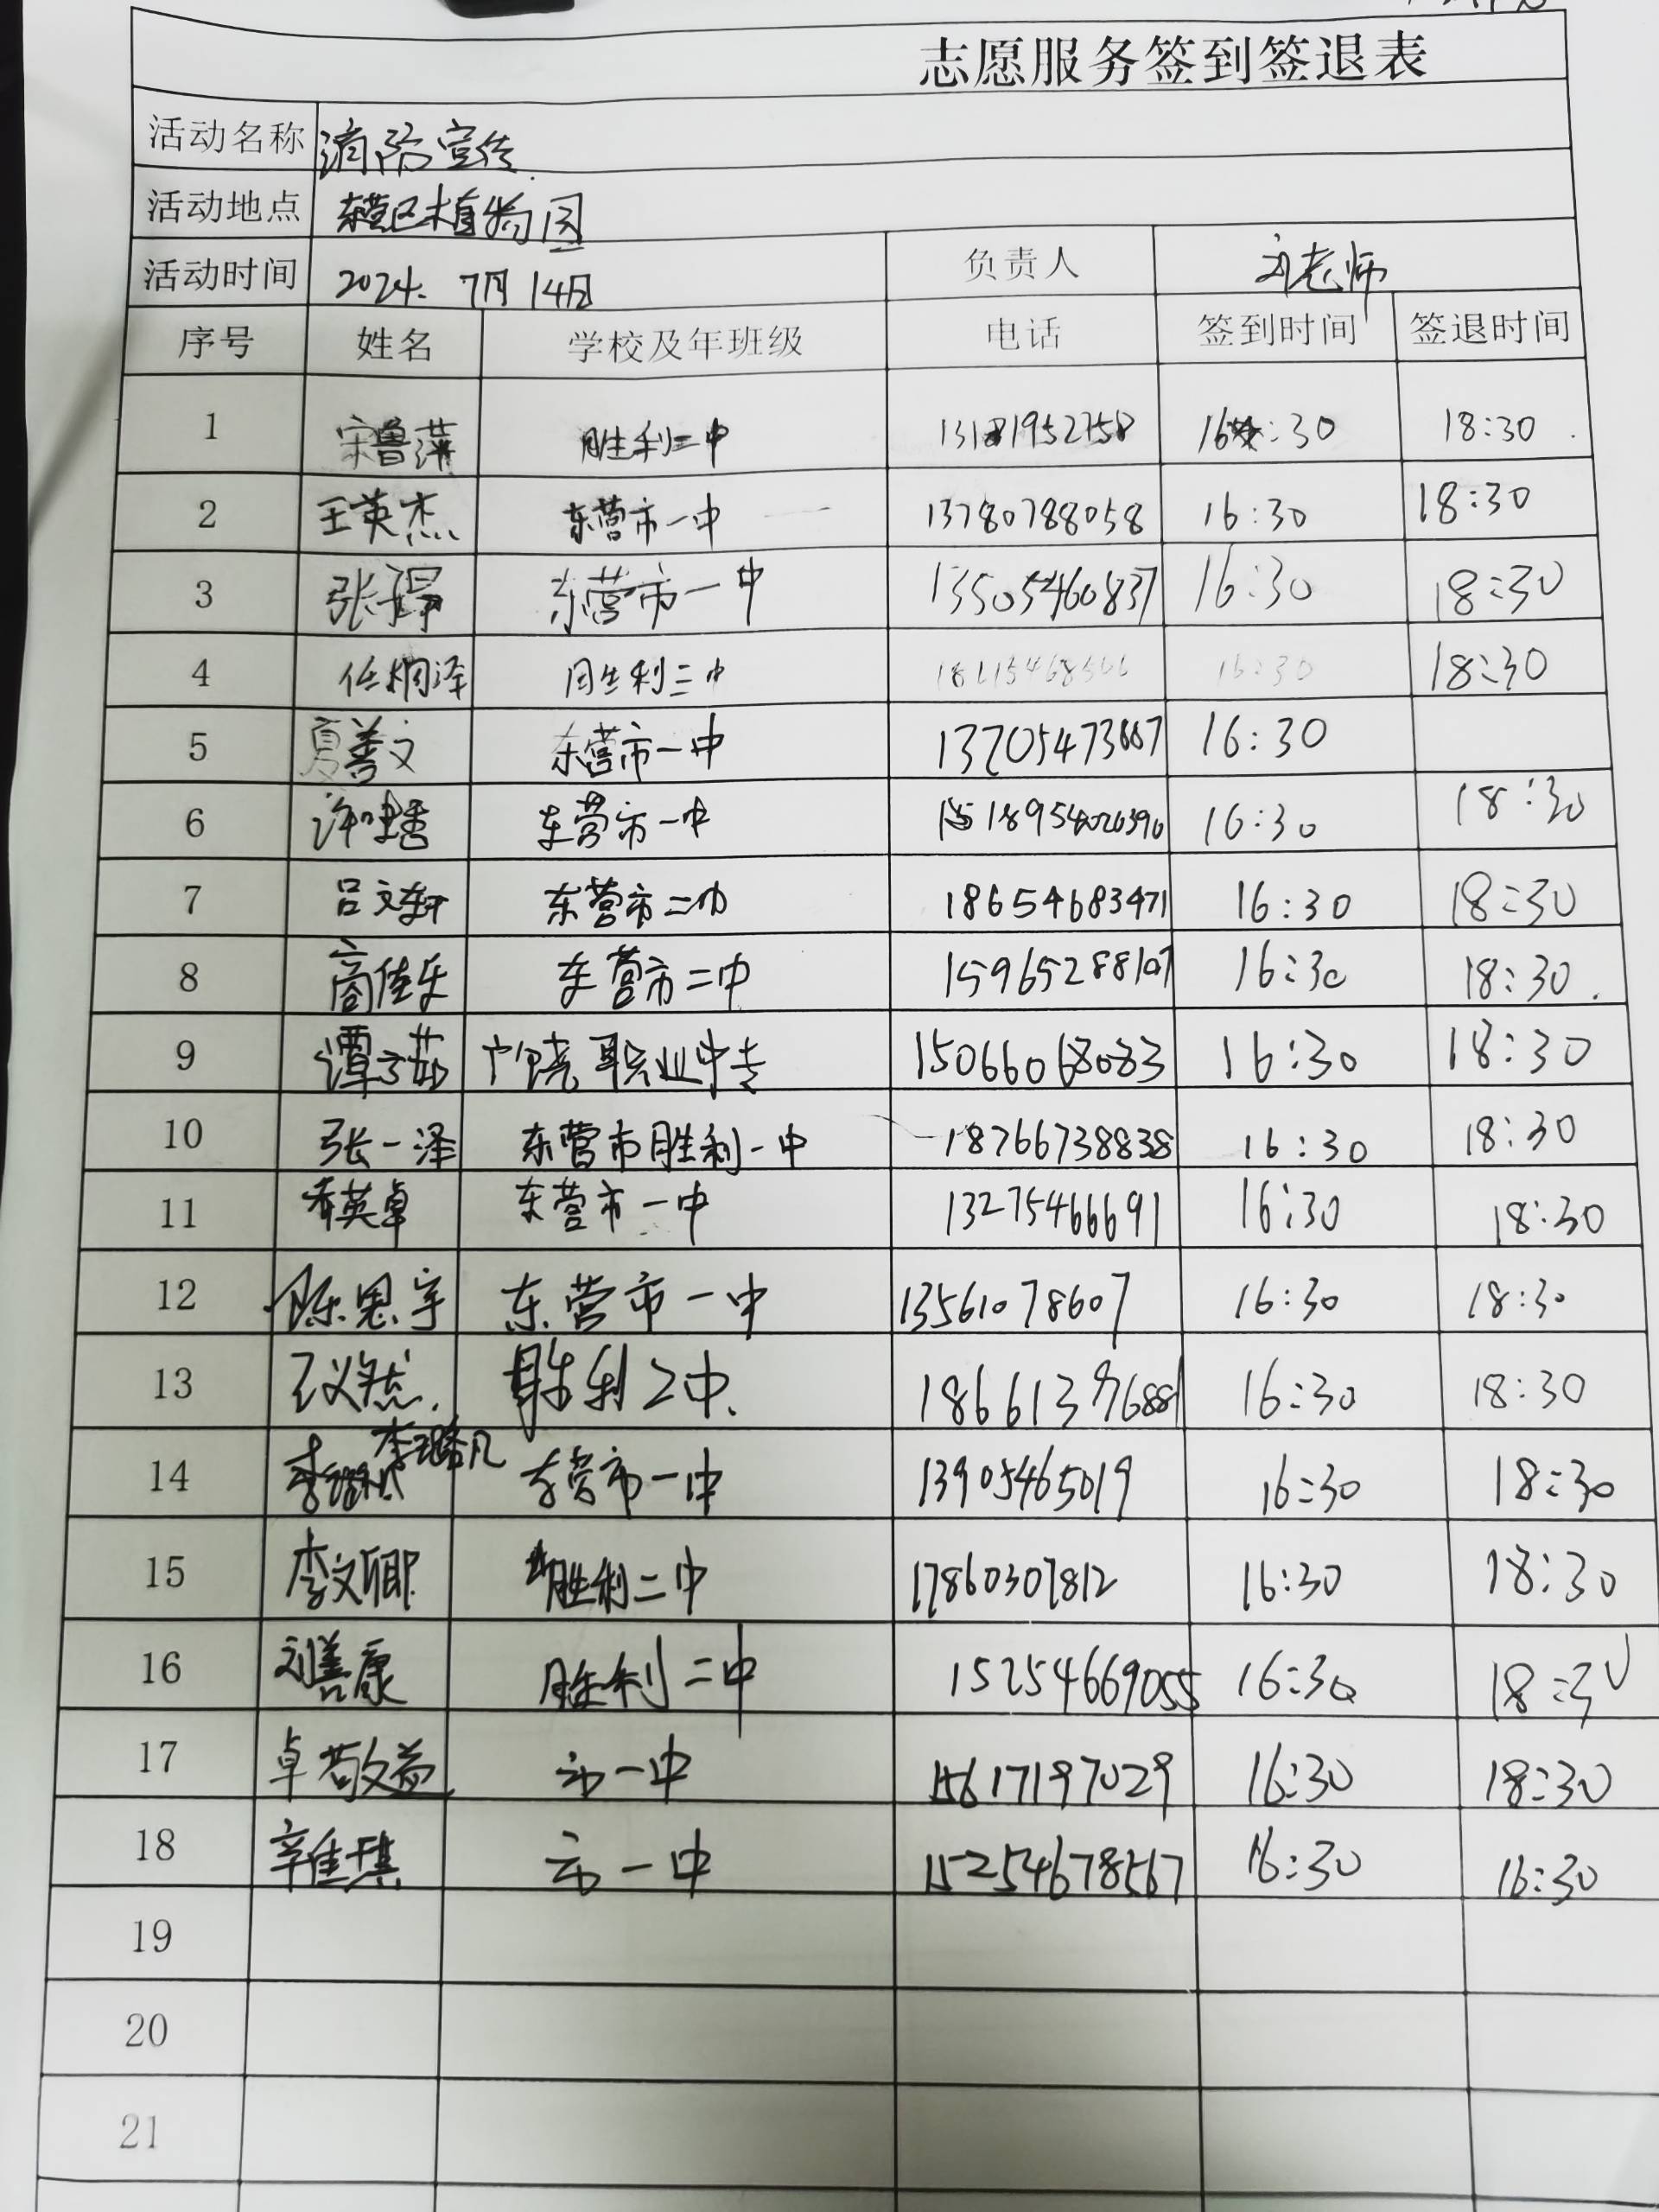 志愿服务签到签退表
活动名称 消防宣传
活动地点 东营区植物园
活动时间 2024. 7月14日 负责人 刘老师
序号 姓名 学校及年班级 电话 签到时间 签退时间
1 宋鲁萍 胜利二中 13181952758 16:30 18:30
2 王英杰 东营市一中 13780788058 16:30 18:30
3 张 东营市一中 13505460837 16:30 18:30
4 任炯泽 胜利二中 16:30 18:30
5 夏善文 东营市一中 13705473667 16:30
6 许 东营市一中 16:30 18:30
7 吕文轩 东营市二中 18654683471 16:30 18:30
8 商佳乐 东营市二中 15965288107 16:30 18:30
9 谭方茹 广饶职业中专 15066068083 16:30 18:30
10 张一泽 东营市胜利一中 18766738838 16:30 18:30
11 英卓 东营市一中 13275466691 16:30 18:30
12 陈思宇 东营市一中 13561078607 16:30 18:30
13 王义然. 胜利二中. 16:30 18:30
14 李璐凡 东营市一中 13905465019 16:30 18:30
15 李文卿 胜利二中 17860307812 16:30 18:30
16 刘善康 胜利二中 15254669055 16:30 18:30
17 卓敬益 市一中 15617197029 16:30 18:30
18 辛佳琪 市一中 15254678567 16:30 16:30
19
20
21